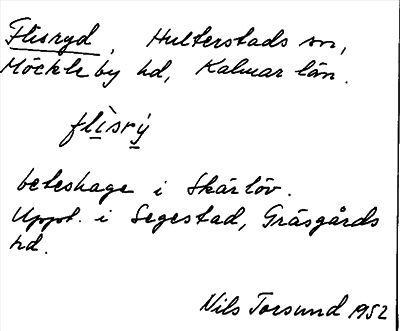 Flisryd, Hulterstads sn,
Möckleby hd, Kalmar län.
flìsrý
beteshage i Skärlöv.
Uppt. i Segestad, Gräsgårds
hd.
Nils Torsund 1952